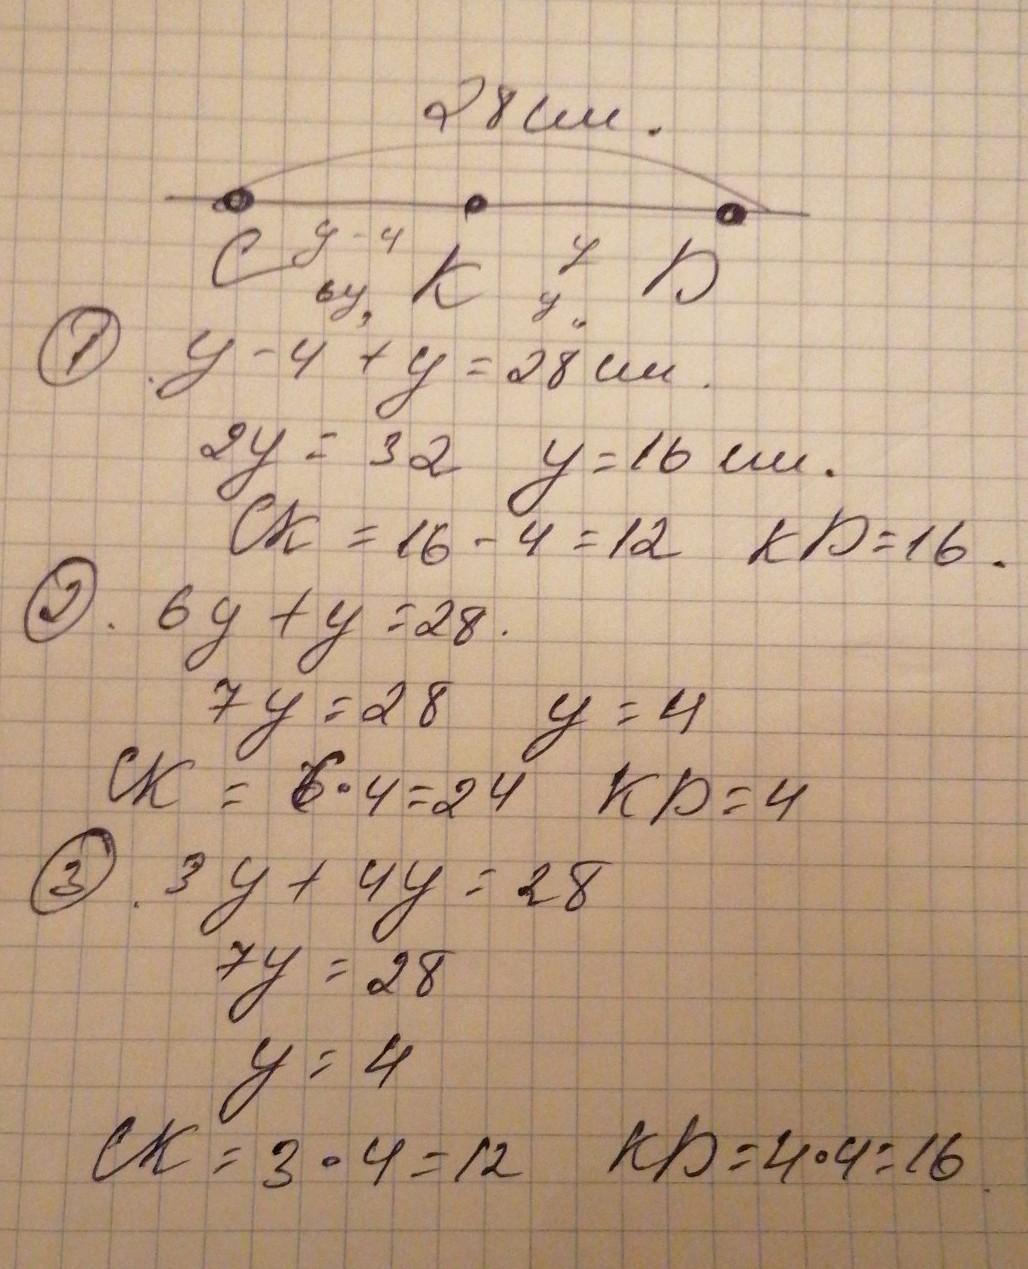 28 см.
C y-4 K y D
6y, y
① y-4+y=28 см.
2y = 32 y=16 см.
CK = 16-4=12 KD=16.
②. 6y+y=28.
7y=28 y=4
CK = 6·4=24 KD=4
③. 3y+4y=28
7y=28
y=4
CK=3·4=12 KD=4·4=16.